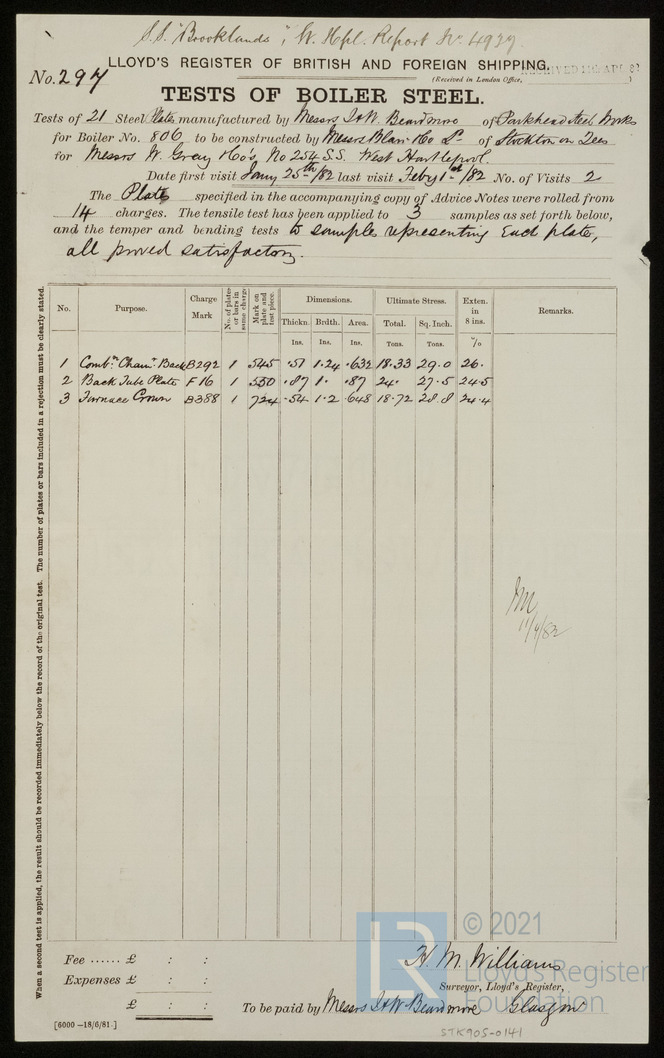 S.S. "Brooklands", W. Hpl. Report No. 4937.
LLOYD'S REGISTER OF BRITISH AND FOREIGN SHIPPING.
No. 297
(Received in London Office, RECEIVED APL 82)
TESTS OF BOILER STEEL.
Tests of 21 Steel Plates manufactured by Messrs I & W. Beardmore of Parkhead Steel Works
for Boiler No. 806 to be constructed by Messrs Blair & Co Ld of Stockton on Tees
for Messrs W. Gray & Co's, No 254 S.S. West Hartlepool.
Date first visit Jany 25th/82 last visit Feby 1st/82 No. of Visits 2
The Plates specified in the accompanying copy of Advice Notes were rolled from
14 charges. The tensile test has been applied to 3 samples as set forth below,
and the temper and bending tests to samples representing each plate,
all proved satisfactory.
When a second test is applied, the result should be recorded immediately below the record of the original test. The number of plates or bars included in a rejection must be clearly stated.
No. Purpose. Charge Mark No. of plates or bars in same charge Mark on plate and test piece. Dimensions. Ultimate Stress. Exten. in 8 ins. Remarks.
Thickn. Brdth. Area. Total. Sq. Inch.
Ins. Ins. Ins. Tons. Tons. %
1 Combn Cham. Back B292 1 545 .51 1.24 .632 18.33 29.0 26.
2 Back Tube Plate F16 1 550 .87 1. .87 24. 27.5 24.5
3 Furnace Crown B388 1 724 .54 1.2 .648 18.72 28.8 24.4
11/4/82
LR
© 2021
Lloyd's Register
Foundation
Fee ...... £ : :
Expenses £ : :
£ : :
H. M. Williams
Surveyor, Lloyd's Register,
To be paid by Messrs I & W Beardmore Glasgow
[6000 –18/6/81.]
STK905-0141